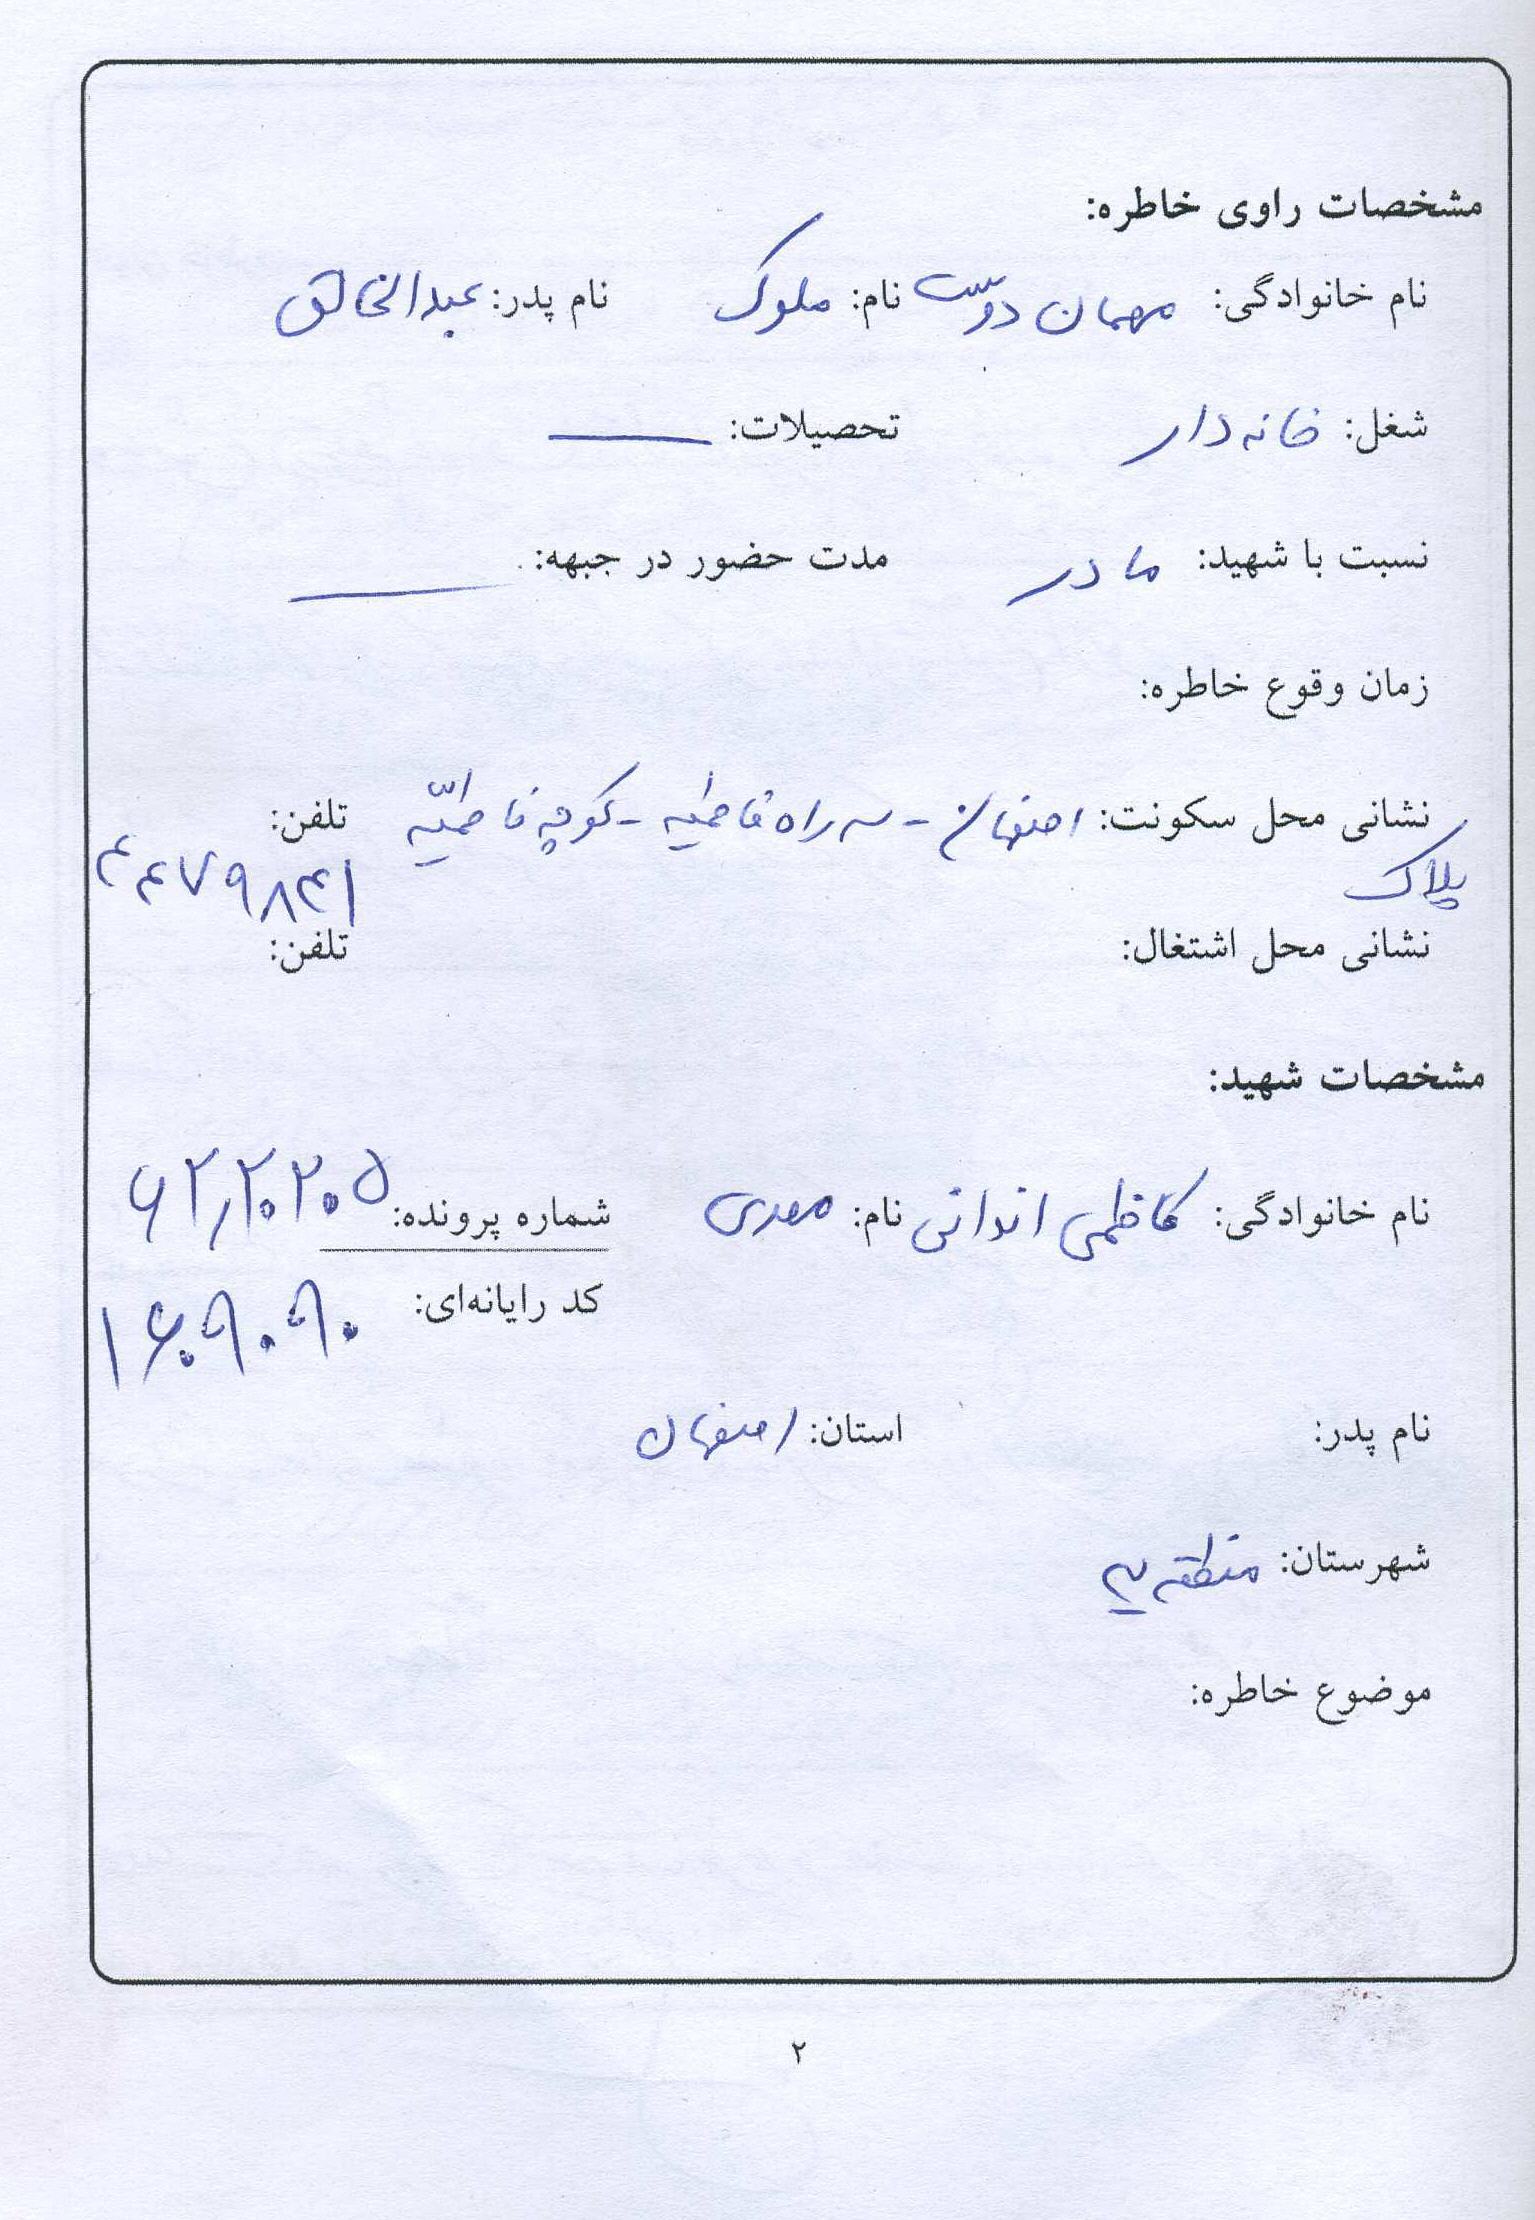 مشخصات راوی خاطره:
نام خانوادگی: مهمان دوست نام: ملوک نام پدر: عبدالخالق
شغل: خانه دار تحصیلات: ــــ
نسبت با شهید: مادر مدت حضور در جبهه: ــــ
زمان وقوع خاطره:
نشانی محل سکونت: اصفهان - سه راه فاطمیه - کوچه فاطمیّه تلفن:
پلاک ۴۴۷۹۸۴۱
نشانی محل اشتغال: تلفن:
مشخصات شهید:
نام خانوادگی: کاظمی اندانی نام: مهدی شماره پرونده: ۶۲۲۰۲۰۵
کد رایانه‌ای: ۱۶۰۹۰۹۰
نام پدر: استان: اصفهان
شهرستان: منطقه
موضوع خاطره:
۲